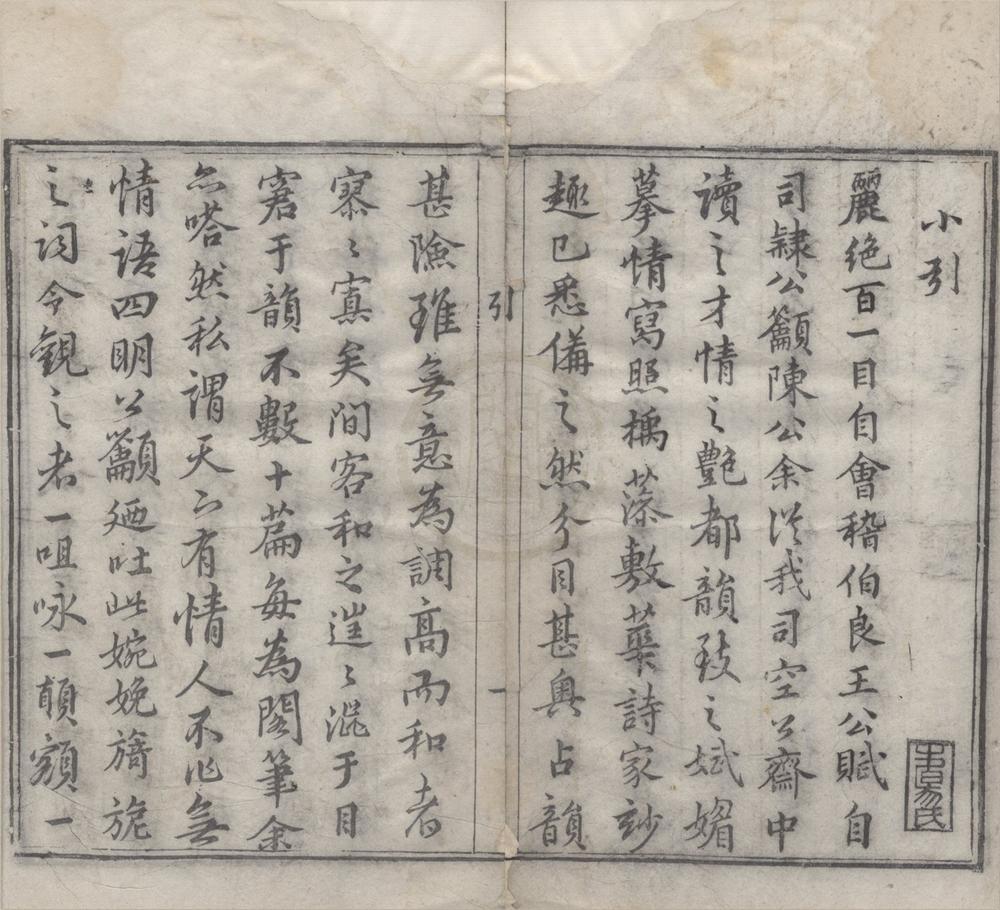 小引
麗絕百一目自會稽伯良王公賦自
司隸公籲陳公余從我司空公齋中
讀之才情之艷都韻致之娬媚
摹情寫照摛藻敷華詩家玅
趣已悉備之然分目甚奧占韻
引
一
甚險雖無意為調高而和者
寡寡矣間客和之遑遑混于目
窘于韻不數十篇每為閣筆余
嗒然私謂天下有情人不作無
情語四明公籲迺吐此婉娩旖旎
之詞令觀之者一咀咏一頫額一